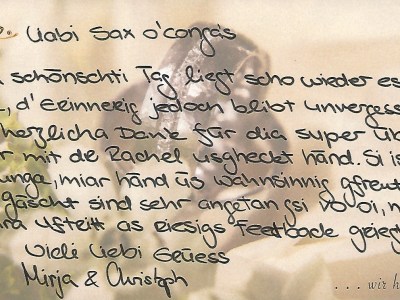 Liabi Sax o'congas
schönschti Tag liegt scho wieder es
d'Erinnerig jedoch blibt unvergess
herzlicha Dank für dia super üb
r mit de Rachel usgheckt händ. Si is
unga, miar händ üs wahnsinnig gfreut
gäscht sind sehr angetan gsi vo oi, m
ra Uftritt as riesigs Feetback geiert
Vieli liebi Grüess
Mirja & Christoph
...wir h